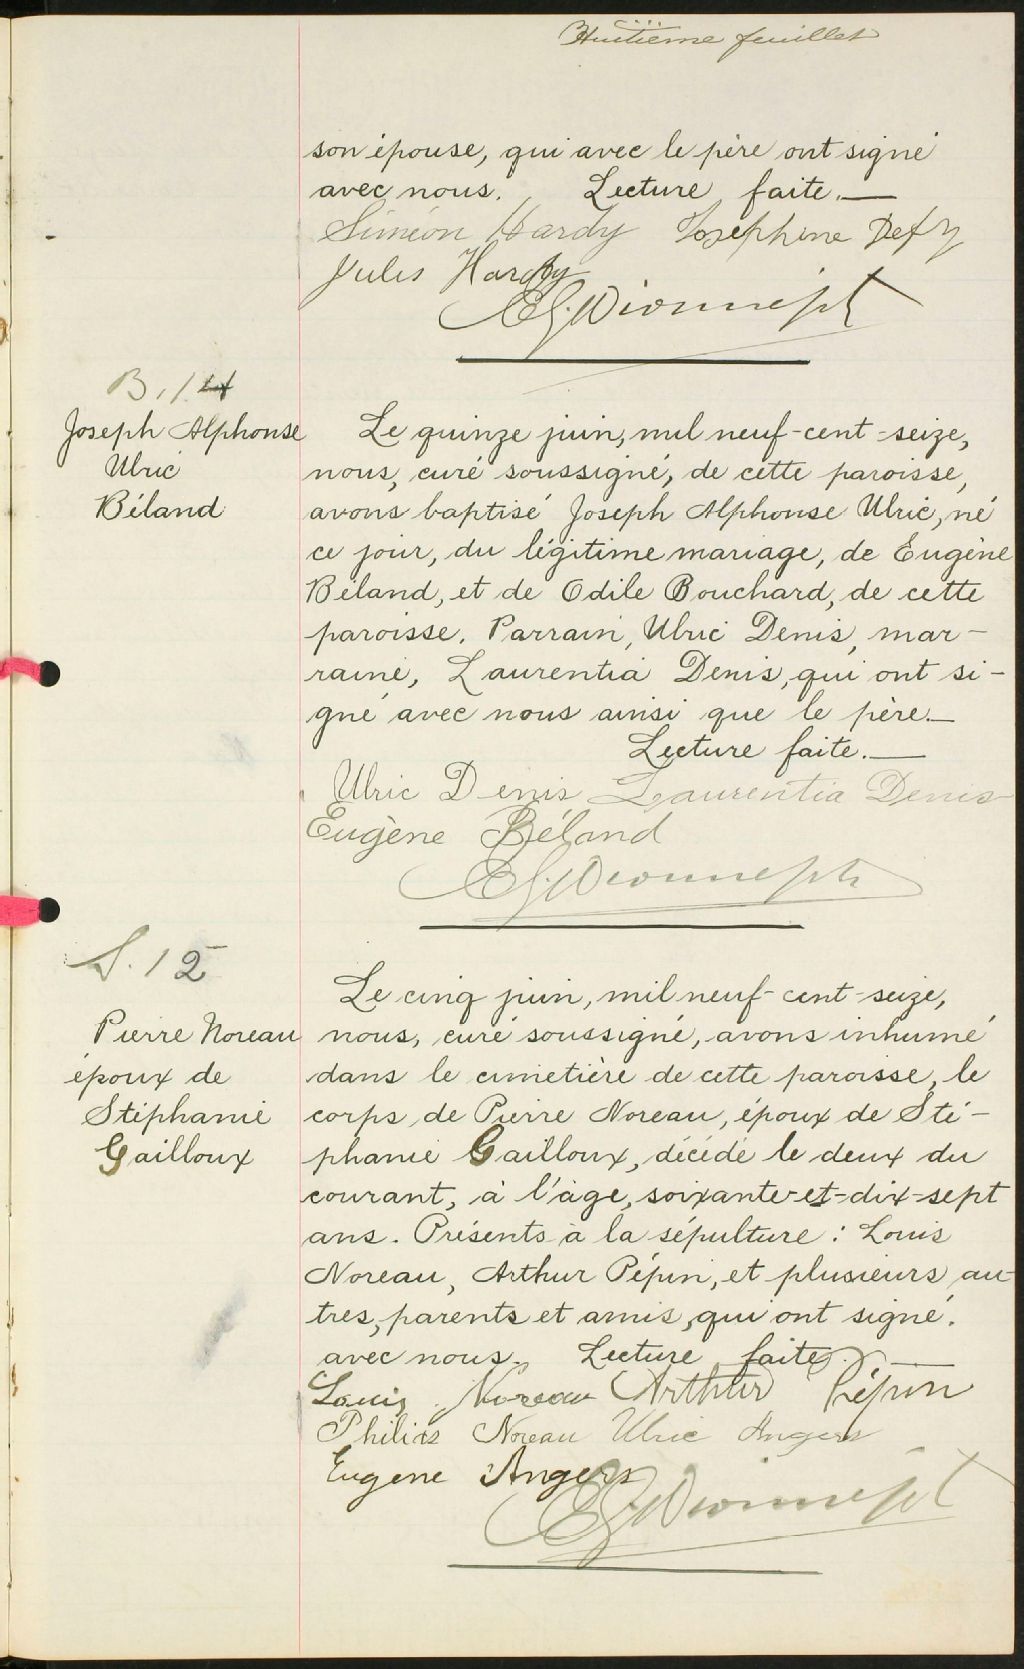 Huitième feuillet
son épouse, qui avec le père ont signé
avec nous. Lecture faite.—
Siméon Hardy Joséphine Defy
Jules Hardy
Dionne ptr
B. 14
Joseph Alphonse
Ulric
Béland
Le quinze juin, mil neuf-cent-seize,
nous, curé soussigné, de cette paroisse,
avons baptisé Joseph Alphonse Ulric, né
ce jour, du légitime mariage, de Eugène
Béland, et de Odile Bouchard, de cette
paroisse. Parrain, Ulric Denis, mar-
raine, Laurentia Denis, qui ont si-
gné avec nous ainsi que le père.—
Lecture faite.—
Ulric Denis Laurentia Denis
Eugène Béland
Dionne ptr
S. 12
Pierre Noreau
époux de
Stéphanie
Gailloux
Le cinq juin, mil neuf-cent-seize,
nous, curé soussigné, avons inhumé
dans le cimetière de cette paroisse, le
corps de Pierre Noreau, époux de Sté-
phanie Gailloux, décédé le deux du
courant, à l'âge, soixante-et-dix-sept
ans. Présents à la sépulture : Louis
Noreau, Arthur Pépin, et plusieurs au-
tres, parents et amis, qui ont signé.
avec nous. Lecture faite.—
Louis Noreau Arthur Pépin
Philias Noreau Ulric Angers
Eugene Angers
Dionne ptr